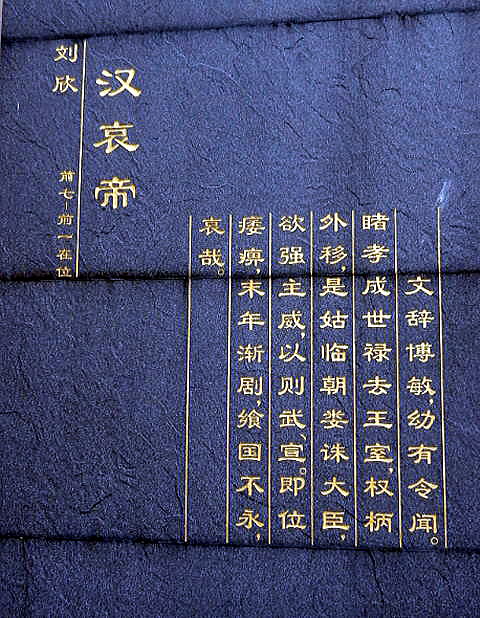 汉哀帝
刘欣
前七—前一在位
文辞博敏,幼有令闻。
睹孝成世禄去王室,权柄
外移,是姑临朝娄诛大臣,
欲强主威,以则武、宣。即位
痿痹,末年渐剧,飨国不永,
哀哉。